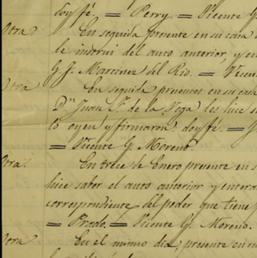 doy fé. = Perry. = Vicente G
Otra. En seguida presente en su casa
le instruí del auto anterior, y en
G. J. Martinez del Rio. = Vicen
Otra En seguida presentes en su cas
Dⁿ Juan de la Vega les hice s
to oyen y firmaron doy fé. =
= Vicente G. Moreno.
Otra. En trece de Enero presente en
hice saber el auto anterior y entera
correspondiente del poder que tiene
= Prado. = Vicente G. Moreno.
Otra En el mismo dia, presente en